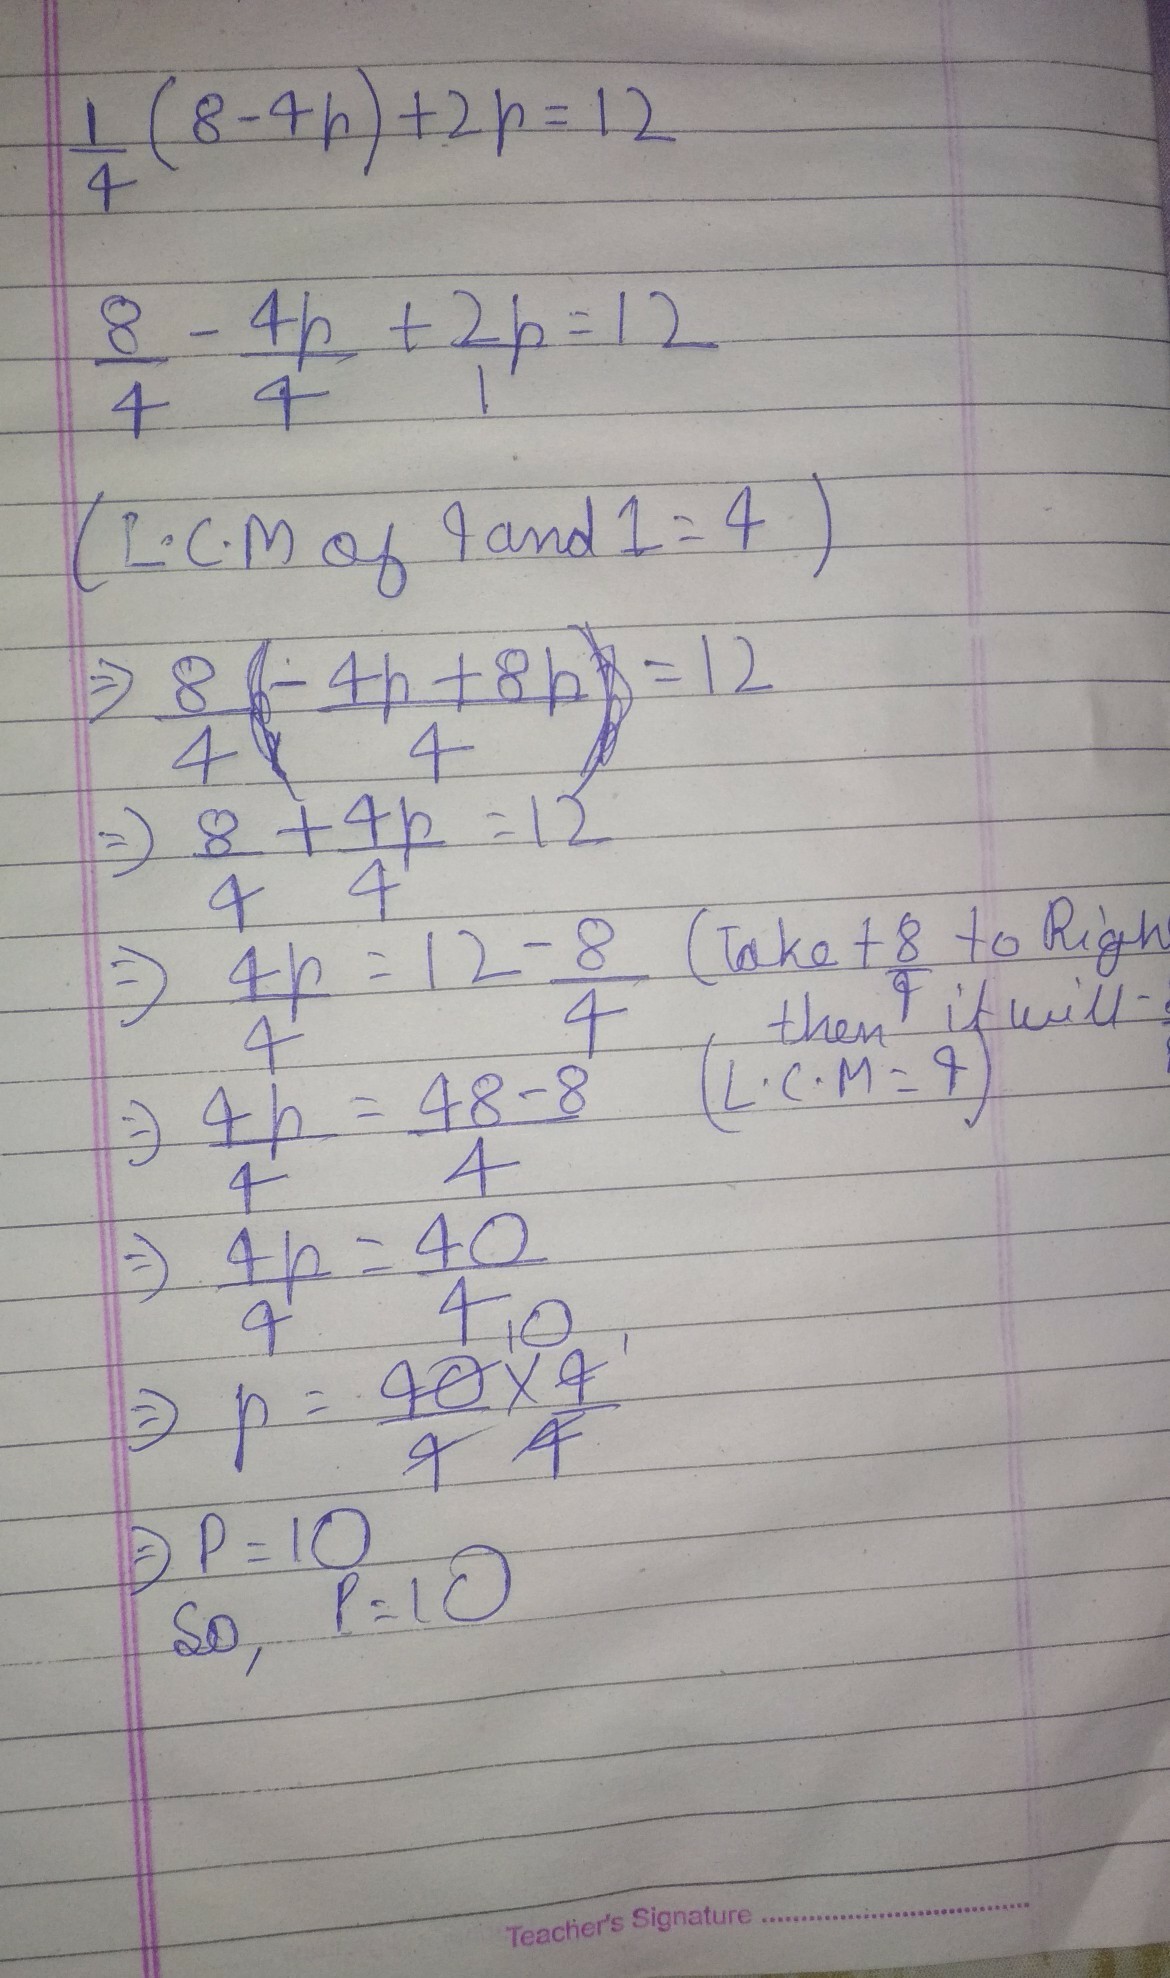 1/4 (8-4p)+2p=12
8/4 - 4p/4 + 2p/1 =12
(L.C.M of 4 and 1=4)
⇒ 8/4 (- 4p+8p/4) =12
⇒ 8/4 + 4p/4 =12
⇒ 4p/4 = 12 - 8/4 (Take +8/4 to Righ
then it will -
⇒ 4p/4 = 48-8/4 (L.C.M=4)
⇒ 4p/4 = 40/4
10 1
⇒ p = 40/4 × 4/4
⇒ P=10
So, P=10
Teacher's Signature